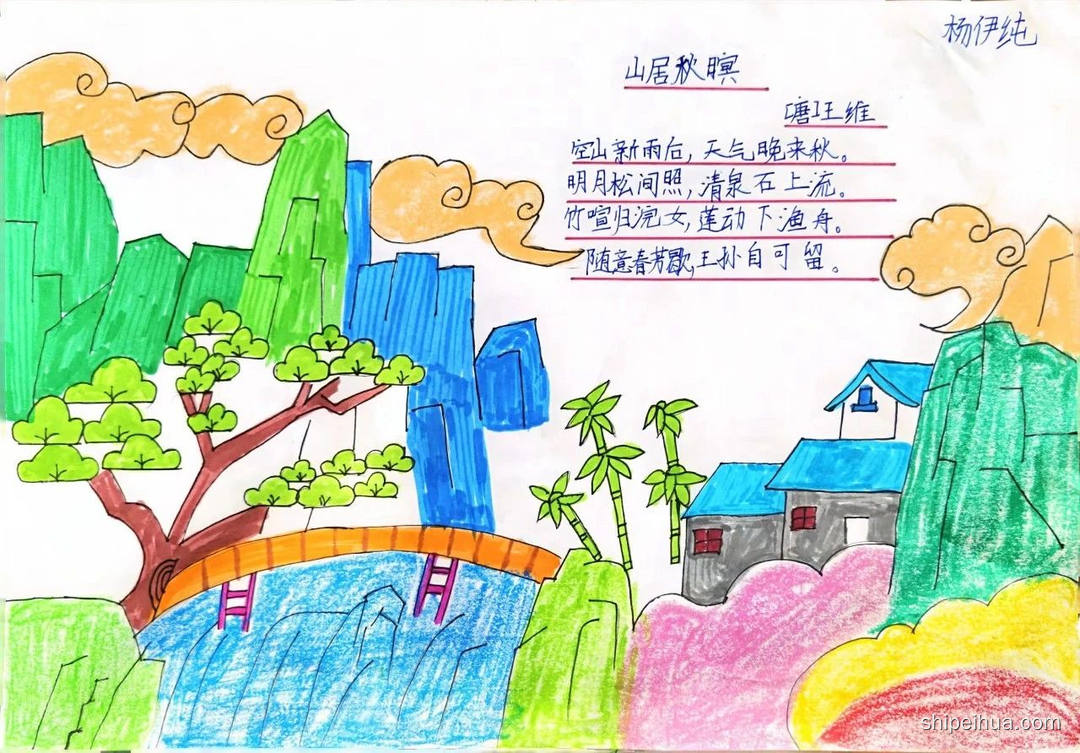 杨伊纯
山居秋暝
[唐]王维
空山新雨后,天气晚来秋。
明月松间照,清泉石上流。
竹喧归浣女,莲动下渔舟。
随意春芳歇,王孙自可留。
shipeihua.com